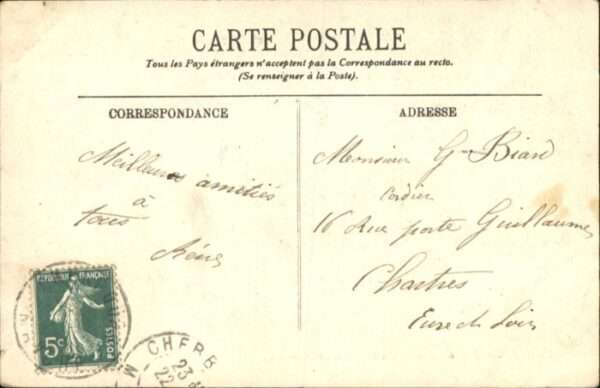 CARTE POSTALE
Tous les Pays étrangers n'acceptent pas la Correspondance au recto.
(Se renseigner à la Poste).
CORRESPONDANCE
Meilleures amitiés
à
tous
ADRESSE
Monsieur G. Biard
Cordier
16 Rue porte Guillaume
Chartres
Eure et Loir
REPUBLIQUE FRANÇAISE
5c
POSTES
CHERB
23
22